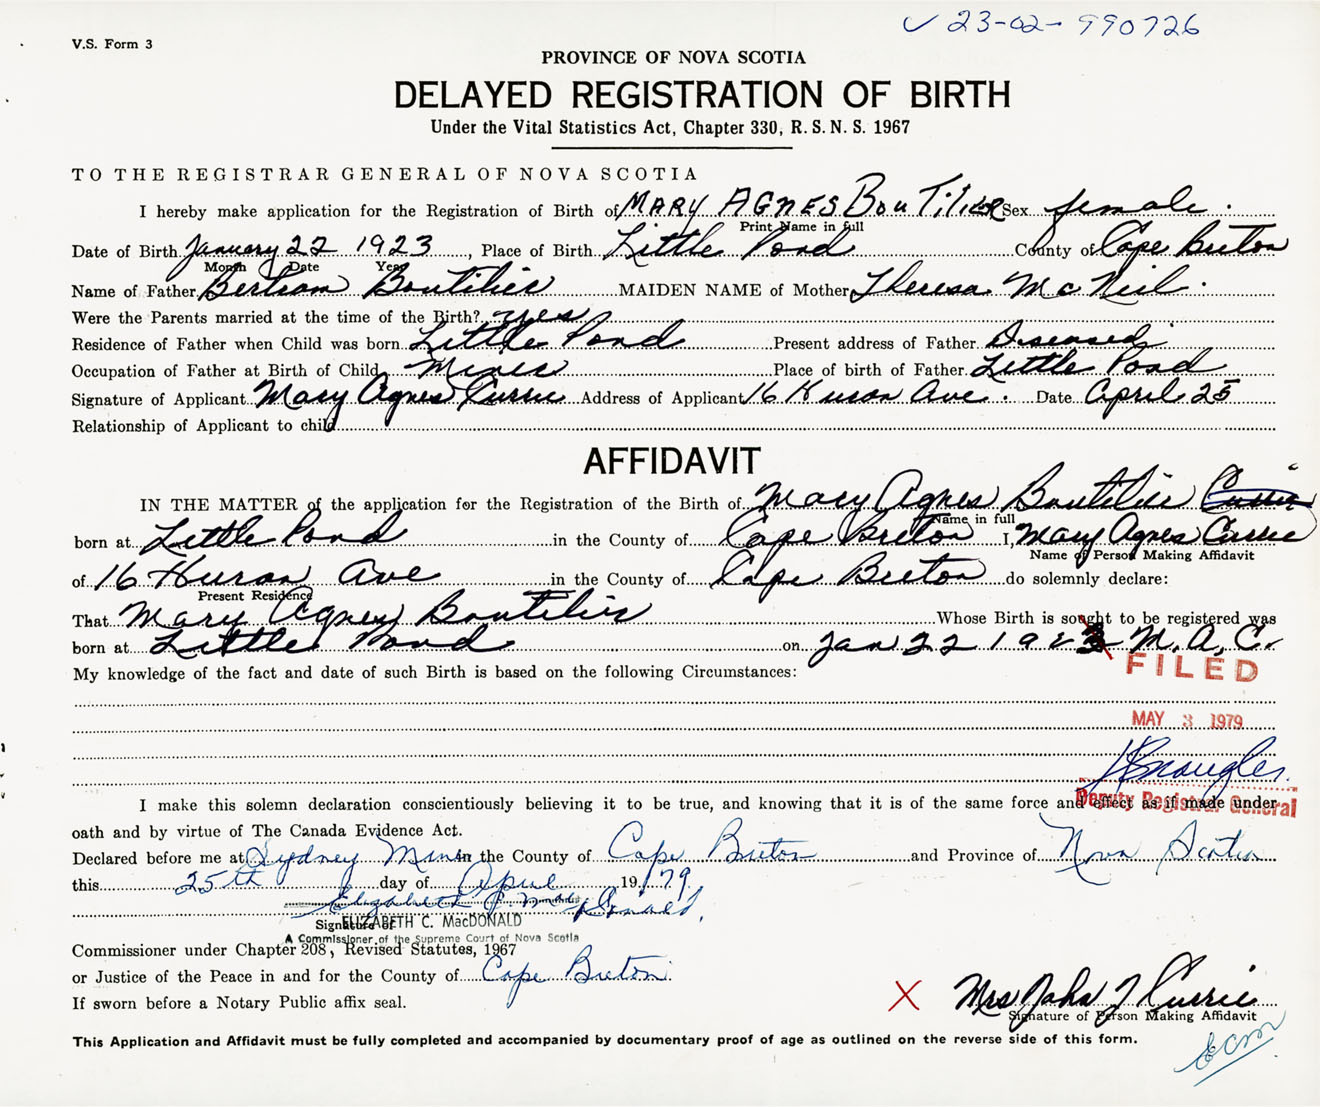 ✓ 23-02-990726
V.S. Form 3
PROVINCE OF NOVA SCOTIA
DELAYED REGISTRATION OF BIRTH
Under the Vital Statistics Act, Chapter 330, R.S.N.S. 1967
TO THE REGISTRAR GENERAL OF NOVA SCOTIA
I hereby make application for the Registration of Birth of MARY AGNES BouTilieR Sex female.
Print Name in full
Date of Birth January 22 1923, Place of Birth Little Pond County of Cape Breton
Month Date Year
Name of Father Bertram Boutilier MAIDEN NAME of Mother Theresa McNeil.
Were the Parents married at the time of the Birth? yes
Residence of Father when Child was born Little Pond Present address of Father Diseased
Occupation of Father at Birth of Child Miner Place of birth of Father Little Pond
Signature of Applicant Mary Agnes Currie Address of Applicant 16 Huron Ave. Date April 25
Relationship of Applicant to child
AFFIDAVIT
IN THE MATTER of the application for the Registration of the Birth of Mary Agnes Boutilier Currie
Name in full
born at Little Pond in the County of Cape Breton I, Mary Agnes Currie
Name of Person Making Affidavit
of 16 Huron Ave in the County of Cape Breton do solemnly declare:
Present Residence
That Mary Agnes Boutilier Whose Birth is sought to be registered was
born at Little Pond on Jan 22 1923 M.A.C.
My knowledge of the fact and date of such Birth is based on the following Circumstances:
FILED
MAY 3 1979
Deputy Registrar General
I make this solemn declaration conscientiously believing it to be true, and knowing that it is of the same force and effect as if made under
oath and by virtue of The Canada Evidence Act.
Declared before me at Sydney Mines in the County of Cape Breton and Province of Nova Scotia
this 25th day of April 1979.
Elizabeth C. MacDonald,
Signature of ELIZABETH C. MacDONALD
A Commissioner of the Supreme Court of Nova Scotia
Commissioner under Chapter 208, Revised Statutes, 1967
or Justice of the Peace in and for the County of Cape Breton.
If sworn before a Notary Public affix seal.
X Mrs John J Currie
Signature of Person Making Affidavit
This Application and Affidavit must be fully completed and accompanied by documentary proof of age as outlined on the reverse side of this form.